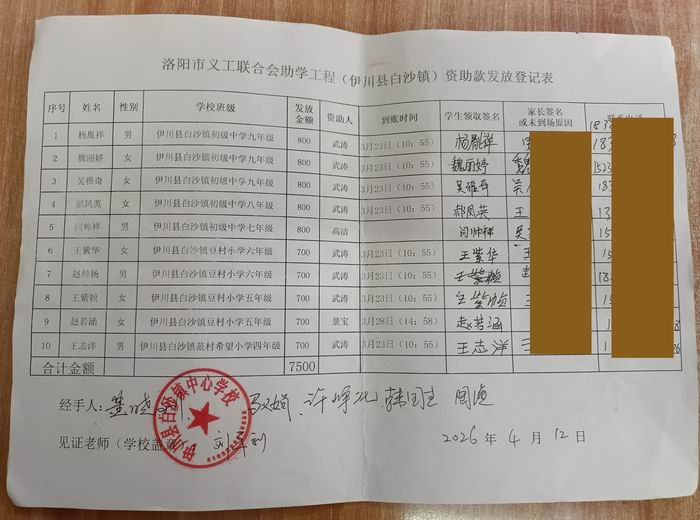 洛阳市义工联合会助学工程（伊川县白沙镇）资助款发放登记表
序号 姓名 性别 学校班级 发放金额 资助人 到账时间 学生领取签名 家长签名或未到场原因
1 杨胤祥 男 伊川县白沙镇初级中学九年级 800 武涛 3月23日（10：55） 杨胤祥
2 魏丽婷 女 伊川县白沙镇初级中学九年级 800 武涛 3月23日（10：55） 魏丽婷
3 吴雅奇 女 伊川县白沙镇初级中学九年级 800 武涛 3月23日（10：55） 吴雅奇
4 郝凤英 女 伊川县白沙镇初级中学八年级 800 武涛 3月23日（10：55） 郝凤英 王
5 闫帅祥 男 伊川县白沙镇初级中学七年级 800 高洁 闫帅祥
6 王紫华 女 伊川县白沙镇豆村小学六年级 700 武涛 3月23日（10：55） 王紫华
7 赵帅杨 男 伊川县白沙镇豆村小学六年级 700 武涛 3月23日（10：55）
8 王紫 女 伊川县白沙镇豆村小学五年级 700 武涛 3月23日（10：55）
9 赵若涵 女 伊川县白沙镇豆村小学五年级 700 景宝 3月28日（14：58） 赵若涵
10 王志洋 男 伊川县白沙镇范村希望小学四年级 700 武涛 3月23日（10：55） 王志洋
合计金额 7500
经手人： 韩国
见证老师（学校盖章）
伊川县白沙镇中心学校
2026 年 4 月 12 日